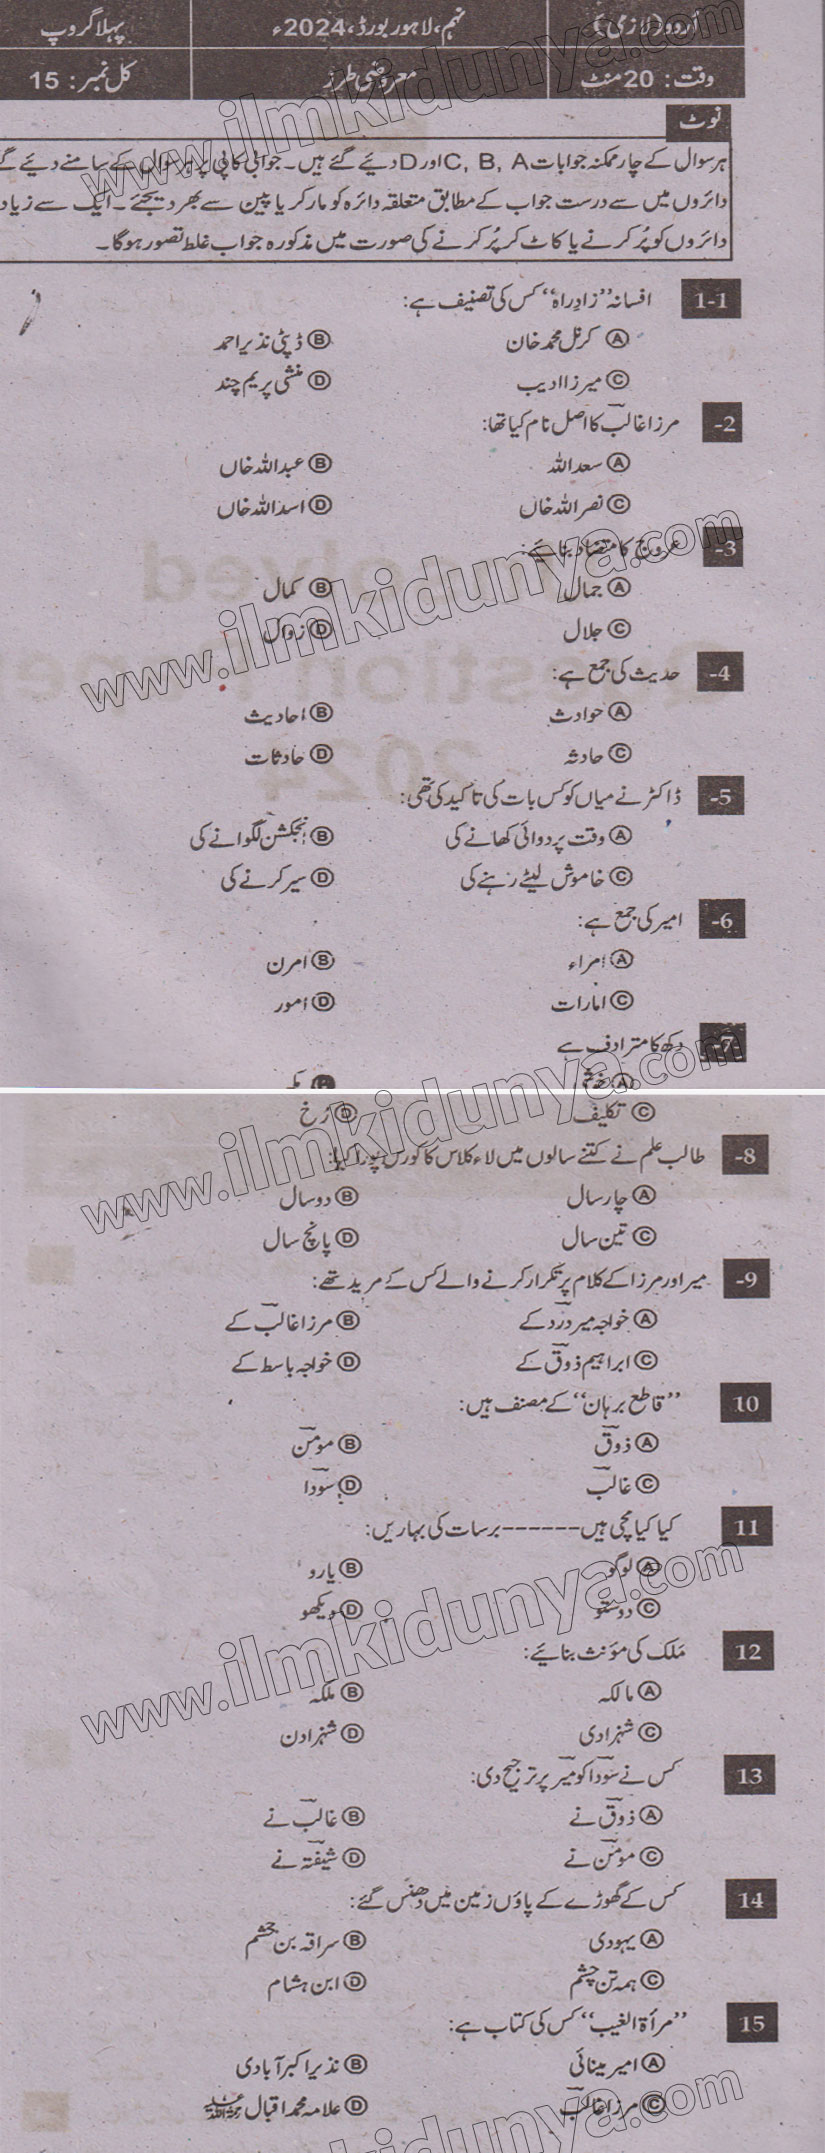 اُردو (لازمی) نہم، لاہور بورڈ، 2024ء پہلا گروپ
وقت: 20 منٹ معروضی طرز کل نمبر: 15
نوٹ
ہر سوال کے چار ممکنہ جوابات C, B, A اور D دیئے گئے ہیں۔ جوابی کاپی پر ہر سوال کے سامنے دیئے گئے
دائروں میں سے درست جواب کے مطابق متعلقہ دائرہ کو مارکر یا پین سے بھر دیجئے۔ ایک سے زیادہ
دائروں کو پُر کرنے یا کاٹ کر پُر کرنے کی صورت میں مذکورہ جواب غلط تصور ہوگا۔
1-1 افسانہ ’’زادِراہ‘‘ کس کی تصنیف ہے:
Ⓐ کرنل محمد خان Ⓑ ڈپٹی نذیر احمد
Ⓒ میرزا ادیب Ⓓ منشی پریم چند
2- مرزا غالب کا اصل نام کیا تھا:
Ⓐ سعد اللہ Ⓑ عبداللہ خاں
Ⓒ نصر اللہ خاں Ⓓ اسد اللہ خاں
3- عروج کا متضاد بنائیے:
Ⓐ جمال Ⓑ کمال
Ⓒ جلال Ⓓ زوال
4- حدیث کی جمع ہے:
Ⓐ حوادث Ⓑ احادیث
Ⓒ حادثہ Ⓓ حادثات
5- ڈاکٹر نے میاں کو کس بات کی تاکید کی تھی:
Ⓐ وقت پر دوائی کھانے کی Ⓑ انجکشن لگوانے کی
Ⓒ خاموش لیٹے رہنے کی Ⓓ سیر کرنے کی
6- امیر کی جمع ہے:
Ⓐ اُمراء Ⓑ امرن
Ⓒ امارات Ⓓ اُمور
7- دکھ کا مترادف ہے
Ⓐ Ⓑ
Ⓒ تکلیف Ⓓ رُخ
8- طالب علم نے کتنے سالوں میں لاء کلاس کا کورس پورا کیا:
Ⓐ چار سال Ⓑ دو سال
Ⓒ تین سال Ⓓ پانچ سال
9- میر اور مرزا کے کلام پر تکرار کرنے والے کس کے مرید تھے:
Ⓐ خواجہ میر درد کے Ⓑ مرزا غالب کے
Ⓒ ابراہیم ذوق کے Ⓓ خواجہ باسط کے
10 ’’قاطع برہان‘‘ کے مصنف ہیں:
Ⓐ ذوق Ⓑ مومن
Ⓒ غالب Ⓓ سودا
11 کیا کیا مچی ہیں ------ برسات کی بہاریں:
Ⓐ لوگو Ⓑ یارو
Ⓒ دوستو Ⓓ دیکھو
12 مَلک کی مؤنث بنائیے:
Ⓐ مالکہ Ⓑ ملکہ
Ⓒ شہزادی Ⓓ شہزادن
13 کس نے سودا کو میر پر ترجیح دی:
Ⓐ ذوق نے Ⓑ غالب نے
Ⓒ مومن نے Ⓓ شیفتہ نے
14 کس کے گھوڑے کے پاؤں زمین میں دھنس گئے:
Ⓐ یہودی Ⓑ سراقہ بن جشم
Ⓒ ہمہ تن چشم Ⓓ ابن ہشام
15 ’’مرأۃ الغیب‘‘ کس کی کتاب ہے:
Ⓐ امیر مینائی Ⓑ نذیر اکبر آبادی
Ⓒ مرزا غالب Ⓓ علامہ محمد اقبال رحمۃ اللہ علیہ
www.ilmkidunya.com
www.ilmkidunya.com
www.ilmkidunya.com
www.ilmkidunya.com